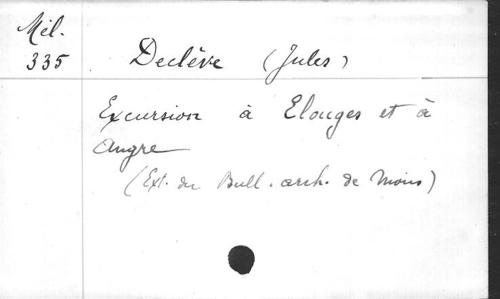 Mél.
335
Declève (Jules)
Excursion à Elouges et à
Angre
(Ext. du Bull. arch. de Mons)